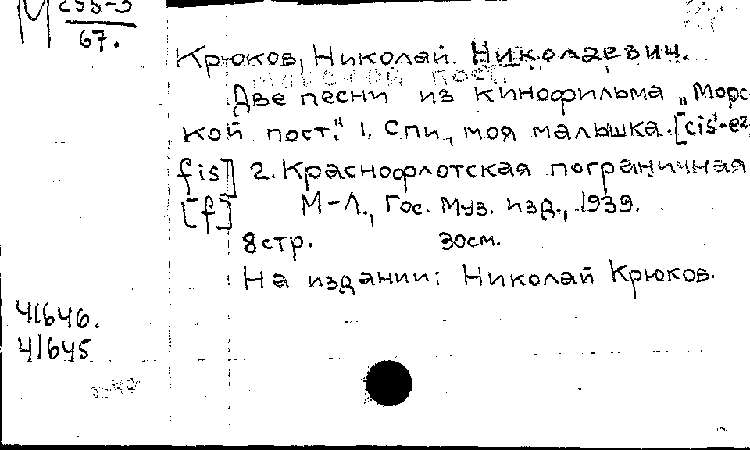 М 255-3
67.
Крюков, Николай Николаевич.
Две песни из кинофильма „Морс-
кой пост." 1. Спи, моя малышка. [cis-
fis] 2. Краснофлотская пограничная
[f] М-Л., Гос. Муз. изд., 1939.
8 стр. 30см.
На издании: Николай Крюков.
41646.
41645